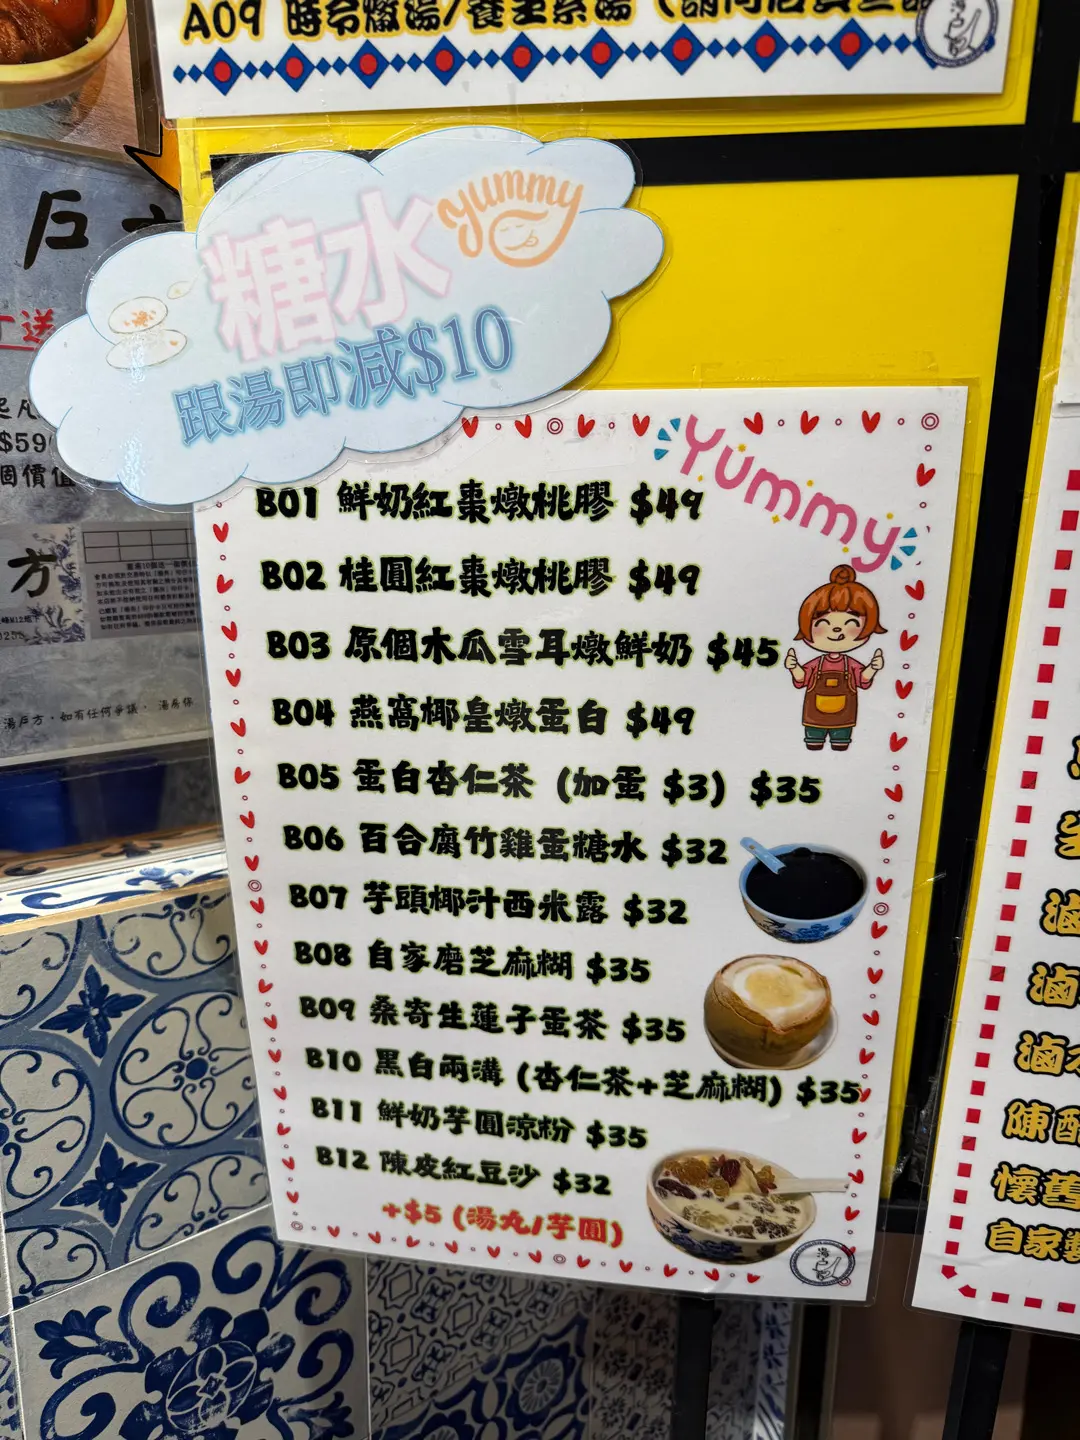 A09 時令燉湯/養生素湯
糖水
yummy
跟湯即減$10
Yummy
B01 鮮奶紅棗燉桃膠 $49
B02 桂圓紅棗燉桃膠 $49
B03 原個木瓜雪耳燉鮮奶 $45
B04 燕窩椰皇燉蛋白 $49
B05 蛋白杏仁茶 (加蛋 $3) $35
B06 百合腐竹雞蛋糖水 $32
B07 芋頭椰汁西米露 $32
B08 自家磨芝麻糊 $35
B09 桑寄生蓮子蛋茶 $35
B10 黑白兩溝 (杏仁茶+芝麻糊) $35
B11 鮮奶芋圓涼粉 $35
B12 陳皮紅豆沙 $32
+$5 (湯丸/芋圓)
戶
送
$59
個價值
方
湯戶方，如有任何爭議，湯房保
滷
滷
滷
陳醋
懷舊
自家製